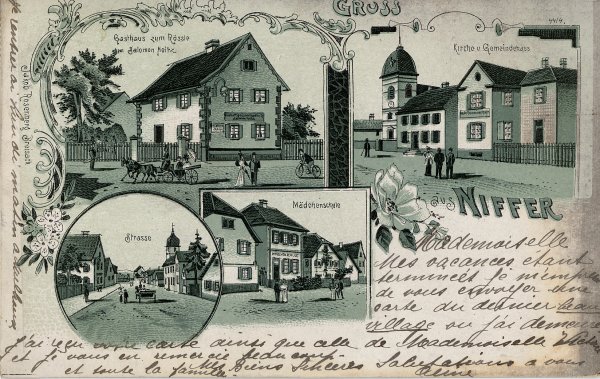 GRUSS
aus NIFFER
4414.
Gasthaus zum Rössle
von Salomon
Kirche u Gemeindehaus
Strasse
Mädchenschule
Mademoiselle
Mes vacances étant
terminées je m'empresse
de vous envoyer une
carte du dernier beau
village ou j'ai demeuré
J'ai reçu votre carte ainsi que celle de Mademoiselle
et je vous en remercie beaucoup
et toute la famille. Mes biens sincères Salutations a vous
Aline